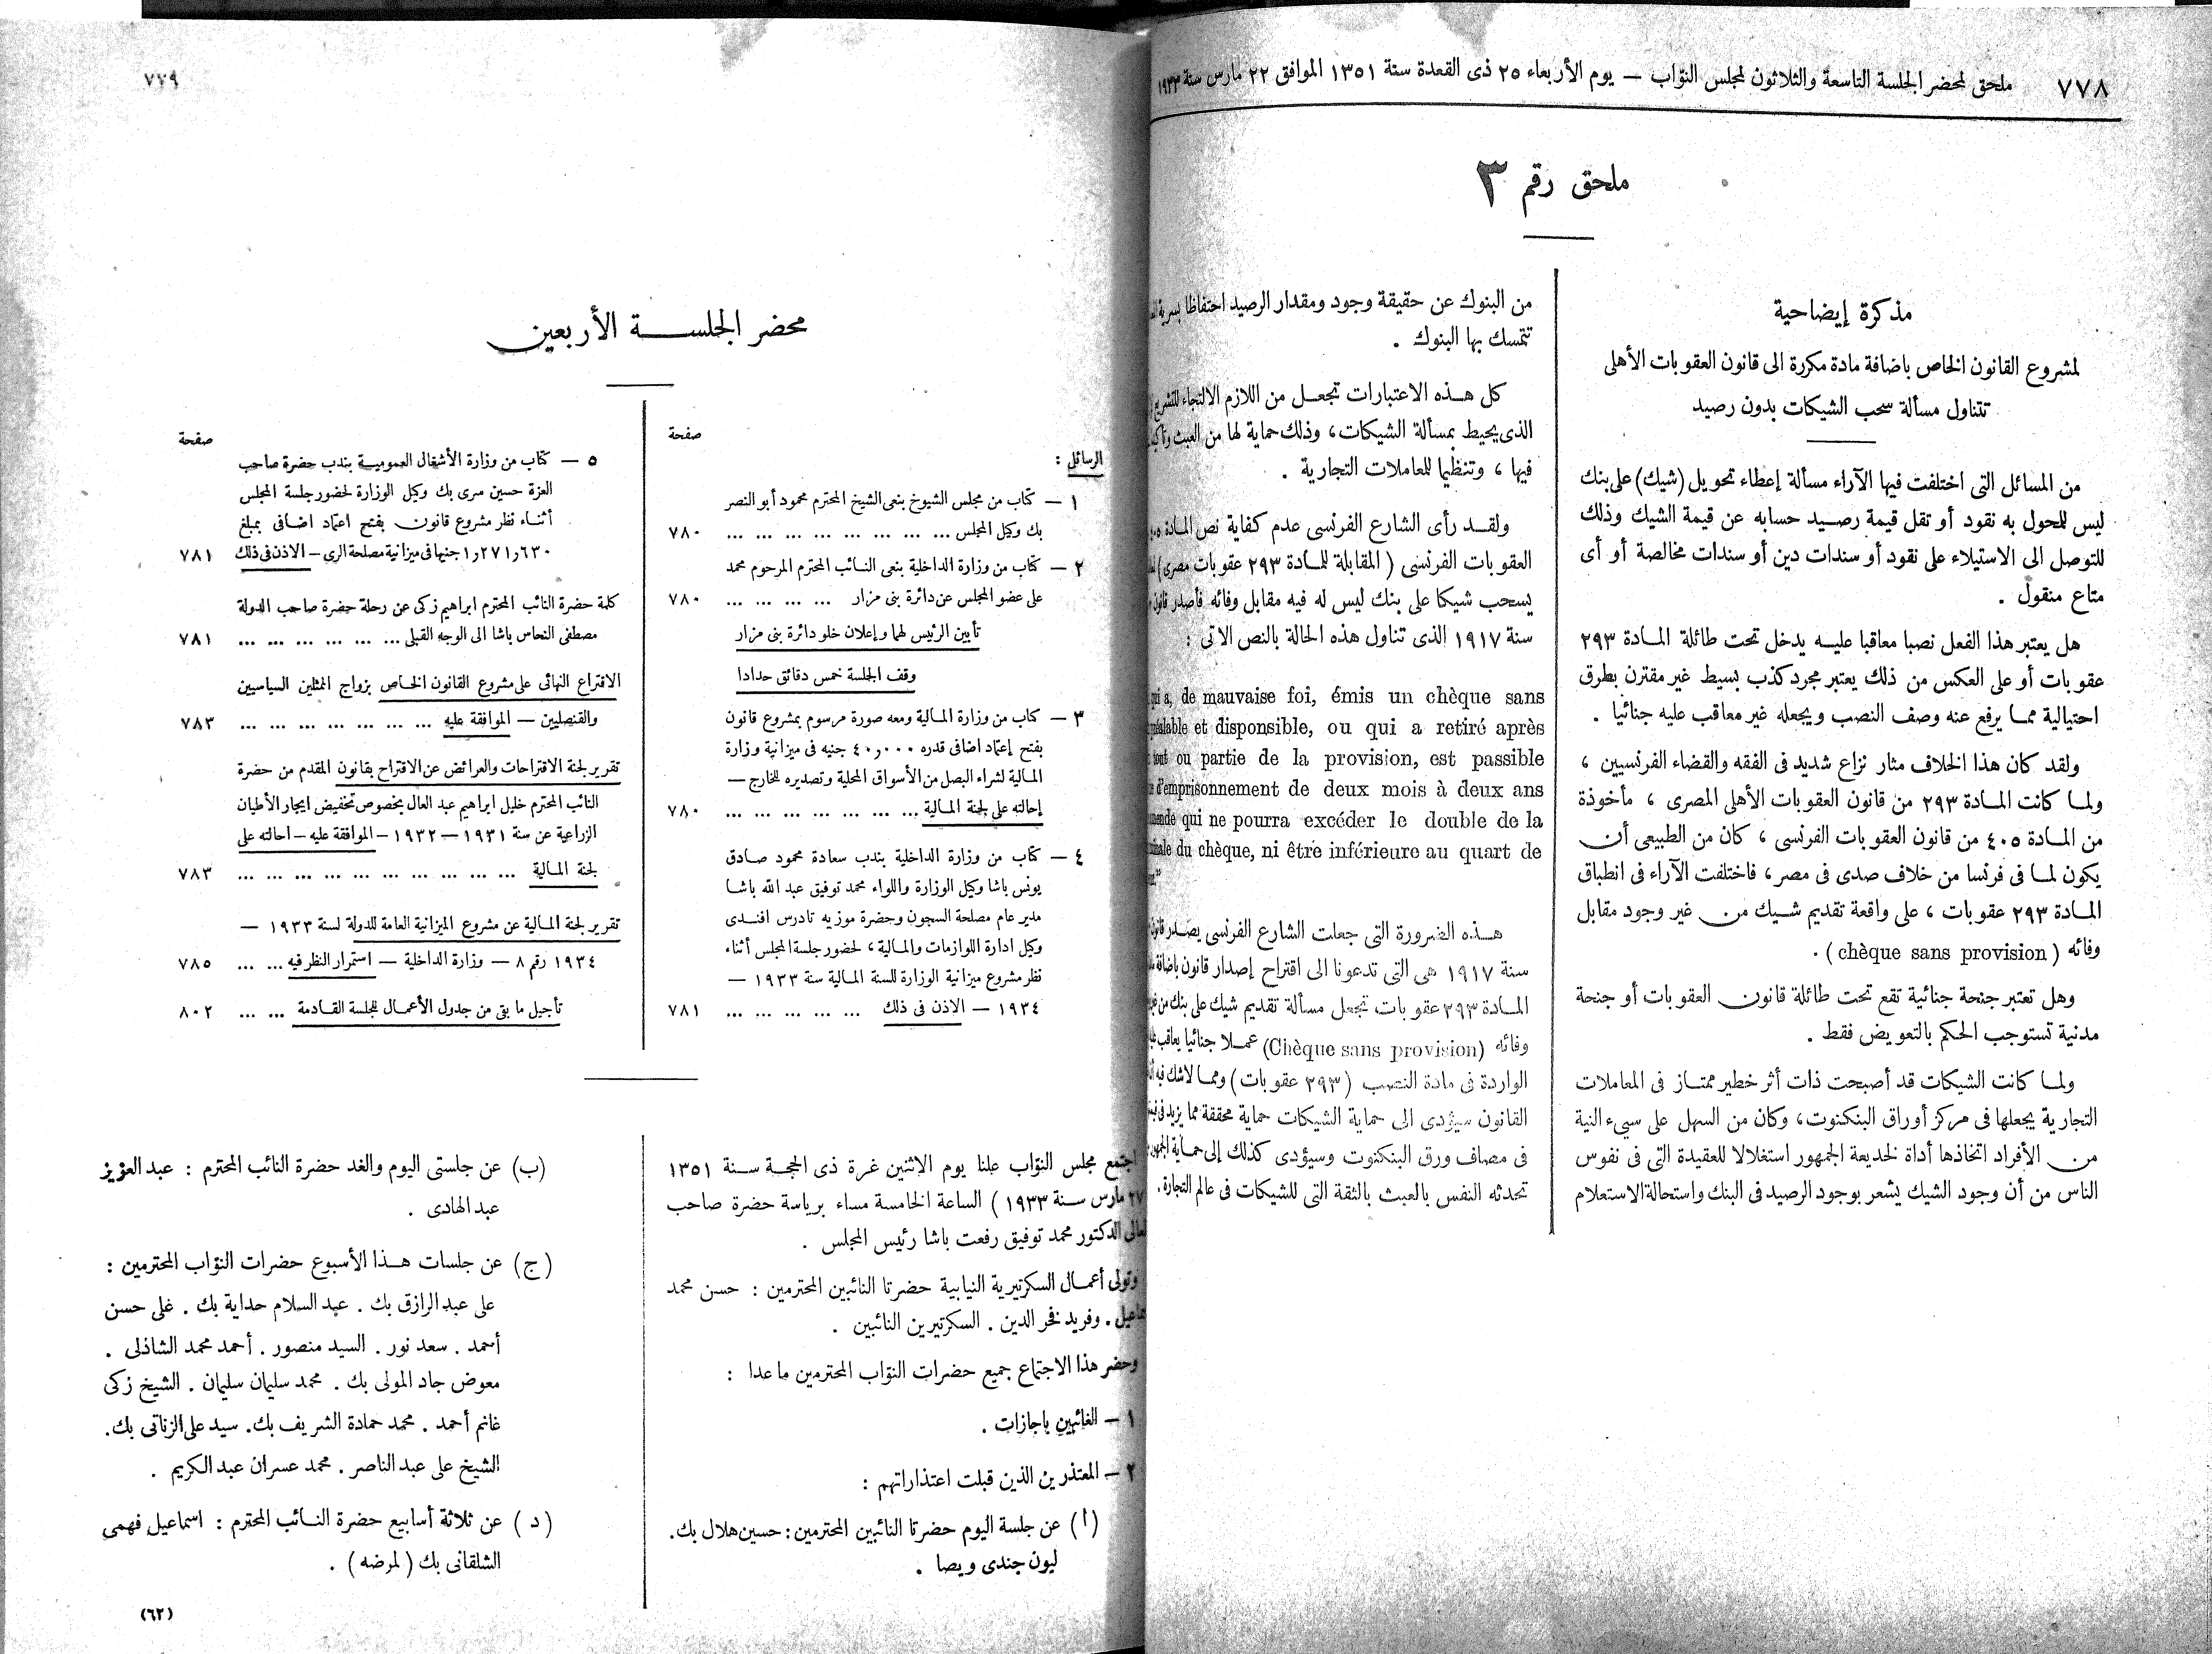 ٧٧٨ ملحق لمحضر الجلسة التاسعة والثلاثون لمجلس النوّاب — يوم الأربعاء ٢٥ ذى القعدة سنة ١٣٥١ الموافق ٢٢ مارس سنة ١٩٣٣
ملحق رقم ٣
مذكرة إيضاحية
لمشروع القانون الخاص باضافة مادة مكررة الى قانون العقوبات الأهلى
تتناول مسألة سحب الشيكات بدون رصيد
من المسائل التى اختلفت فيها الآراء مسألة إعطاء تحويل (شيك) على بنك
ليس للحول به نقود أو تقل قيمة رصيد حسابه عن قيمة الشيك وذلك
للتوصل الى الاستيلاء على نقود أو سندات دين أو سندات مخالصة أو أى
متاع منقول .
هل يعتبر هذا الفعل نصبا معاقبا عليه يدخل تحت طائلة المادة ٢٩٣
عقوبات أو على العكس من ذلك يعتبر مجرد كذب بسيط غير مقترن بطرق
احتيالية مما يرفع عنه وصف النصب ويجعله غير معاقب عليه جنائيا .
ولقد كان هذا الخلاف مثار نزاع شديد فى الفقه والقضاء الفرنسيين ،
ولما كانت المادة ٢٩٣ من قانون العقوبات الأهلى المصرى ، مأخوذة
من المادة ٤٠٥ من قانون العقوبات الفرنسى ، كان من الطبيعى أن
يكون لما فى فرنسا من خلاف صدى فى مصر ، فاختلفت الآراء فى انطباق
المادة ٢٩٣ عقوبات ، على واقعة تقديم شيك من غير وجود مقابل
وفائه (chèque sans provision) .
وهل تعتبر جنحة جنائية تقع تحت طائلة قانون العقوبات أو جنحة
مدنية تستوجب الحكم بالتعويض فقط .
ولما كانت الشيكات قد أصبحت ذات أثر خطير ممتاز فى المعاملات
التجارية يجعلها فى مركز أوراق البنكنوت ، وكان من السهل على سيىء النية
من الأفراد اتخاذها أداة لخديعة الجمهور استغلالا للعقيدة التى فى نفوس
الناس من أن وجود الشيك يشعر بوجود الرصيد فى البنك واستحالة الاستعلام
من البنوك عن حقيقة وجود ومقدار الرصيد احتفاظا بسرية
تتمسك بها البنوك .
كل هذه الاعتبارات تجعل من اللازم الالتجاء للتشريع
الذى يحيط بمسألة الشيكات ، وذلك حماية لها من العبث
فيها ، وتنظيما للعاملات التجارية .
ولقد رأى الشارع الفرنسى عدم كفاية نص المادة
العقوبات الفرنسى (المقابلة للمادة ٢٩٣ عقوبات مصرى)
يسحب شيكا على بنك ليس له فيه مقابل وفائه فأصدر قانون
سنة ١٩١٧ الذى تناول هذه الحالة بالنص الاتى :
qui a, de mauvaise foi, émis un chèque sans
préalable et disponsible, ou qui a retiré après
tout ou partie de la provision, est passible
d'emprisonnement de deux mois à deux ans
qui ne pourra excéder le double de la
du chèque, ni être inférieure au quart de
هذه الضرورة التى جعلت الشارع الفرنسى يصدر قانون
سنة ١٩١٧ هى التى تدعونا الى اقتراح إصدار قانون باضافة
المادة ٢٩٣ عقوبات تجعل مسألة تقديم شيك على بنك من غير
وفائه (Chèque sans provision) عملا جنائيا يعاقب
الواردة فى مادة النصب (٢٩٣ عقوبات) ومما لاشك فيه
القانون سيؤدى الى حماية الشيكات حماية محققة مما يزيد فى
فى مصاف ورق البنكنوت وسيؤدى كذلك إلى حماية الجمهور
تحدثه النفس بالعبث بالثقة التى للشيكات فى عالم التجارة .
٧٧٩
محضر الجلسة الأربعين
صفحة
الرسائل :
١ — كتاب من مجلس الشيوخ بنعى الشيخ المحترم محمود أبو النصر
بك وكيل المجلس ... ... ... ... ... ... ... ... ٧٨٠
٢ — كتاب من وزارة الداخلية بنعى النائب المحترم المرحوم محمد
على عضو المجلس عن دائرة بنى مزار ... ... ... ... ٧٨٠
تأبين الرئيس لهما وإعلان خلو دائرة بنى مزار
وقف الجلسة خمس دقائق حدادا
٣ — كتاب من وزارة المالية ومعه صورة مرسوم بمشروع قانون
بفتح إعتماد اضافى قدره ٤٠,٠٠٠ جنيه فى ميزانية وزارة
المالية لشراء البصل من الأسواق المحلية وتصديره للخارج —
إحالته على لجنة المالية ... ... ... ... ... ... ... ٧٨٠
٤ — كتاب من وزارة الداخلية بندب سعادة محمود صادق
يونس باشا وكيل الوزارة واللواء محمد توفيق عبد الله باشا
مدير عام مصلحة السجون وحضرة موزيه تادرس افندى
وكيل ادارة اللوازمات والمالية ، لحضور جلسة المجلس أثناء
نظر مشروع ميزانية الوزارة للسنة المالية سنة ١٩٣٣ —
١٩٣٤ — الإذن فى ذلك ... ... ... ... ... ٧٨١
صفحة
٥ — كتاب من وزارة الأشغال العمومية بندب حضرة صاحب
العزة حسين سرى بك وكيل الوزارة لحضور جلسة المجلس
أثناء نظر مشروع قانون بفتح اعتماد اضافى بمبلغ
١,٢٧١,٦٣٠ جنيها فى ميزانية مصلحة الرى — الاذن فى ذلك ٧٨١
كلمة حضرة النائب المحترم ابراهيم زكى عن رحلة حضرة صاحب الدولة
مصطفى النحاس باشا الى الوجه القبلى ... ... ... ... ... ... ٧٨١
الاقتراع النهائى على مشروع القانون الخاص بزواج الممثلين السياسيين
والقنصليين — الموافقة عليه ... ... ... ... ... ... ... ٧٨٣
تقرير لجنة الاقتراحات والعرائض عن الاقتراح بقانون المقدم من حضرة
النائب المحترم خليل ابراهيم عبد العال بخصوص تخفيض ايجار الأطيان
الزراعية عن سنة ١٩٣١ — ١٩٣٢ — الموافقة عليه — احالته على
لجنة المالية ... ... ... ... ... ... ... ... ... ... ٧٨٣
تقرير لجنة المالية عن مشروع الميزانية العامة للدولة لسنة ١٩٣٣ —
١٩٣٤ رقم ٨ — وزارة الداخلية — استمرار النظر فيه ... ... ٧٨٥
تأجيل ما بقى من جدول الأعمال للجلسة القادمة ... ... ٨٠٢
اجتمع مجلس النوّاب علنا يوم الاثنين غرة ذى الحجة سنة ١٣٥١
٢٧ مارس سنة ١٩٣٣ ) الساعة الخامسة مساء برياسة حضرة صاحب
المعالى الدكتور محمد توفيق رفعت باشا رئيس المجلس .
وتولى أعمال السكرتيرية النيابية حضرتا النائبين المحترمين : حسن محمد
اسماعيل . وفريد فخر الدين . السكرتيرين النائبين .
وحضر هذا الاجتماع جميع حضرات النوّاب المحترمين ما عدا :
١ — الغائبين باجازات .
٢ — المعتذرين الذين قبلت اعتذاراتهم :
(ا) عن جلسة اليوم حضرتا النائبين المحترمين : حسين هلال بك .
ليون جندى ويصا .
(ب) عن جلستى اليوم والغد حضرة النائب المحترم : عبد العزيز
عبد الهادى .
(ج) عن جلسات هذا الأسبوع حضرات النوّاب المحترمين :
على عبد الرازق بك . عبد السلام حداية بك . على حسن
أحمد . سعد نور . السيد منصور . أحمد محمد الشاذلى .
معوض جاد المولى بك . محمد سليمان سليمان . الشيخ زكى
غانم أحمد . محمد حمادة الشريف بك . سيد على الزناتى بك .
الشيخ على عبد الناصر . محمد عسران عبد الكريم .
(د) عن ثلاثة أسابيع حضرة النائب المحترم : اسماعيل فهمى
الشلقانى بك (لمرضه) .
(٦٢)